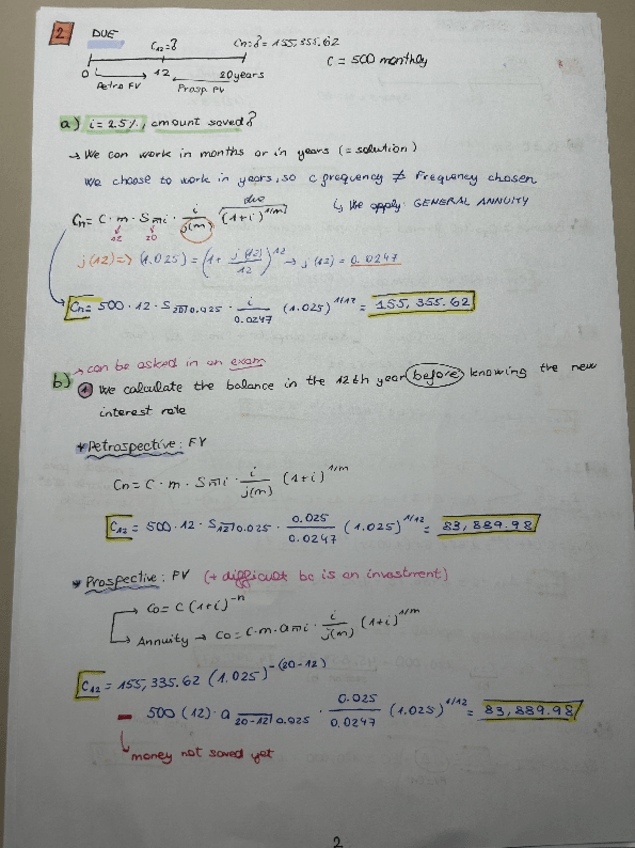 2 DUE C₁₂=? Cn=? = 155,355.62
C = 500 monthly
0 12 20 years
Retro FV Prosp. PV
a) i = 2.5%, amount saved?
→ We can work in months or in years (= solution)
We choose to work in years, so C frequency ≠ Frequency chosen
↳ We apply GENERAL ANNUITY
due
Cn = C · m · Sn̅|i · i/j(m) (1+i)^1/m
12 20
j(12) => (1.025) = (1 + j(12)/12)^12 → j(12) = 0.0247
Cn = 500 · 12 · S20̅|0.025 · i/0.0247 (1.025)^1/12 = 155,355.62
→ can be asked in an exam
b) 1 We calculate the balance in the 12th year before knowing the new
interest rate
* Retrospective: FV
Cn = C · m · Sn̅|i · i/j(m) (1+i)^1/m
C₁₂ = 500 · 12 · S12̅|0.025 · 0.025/0.0247 (1.025)^1/12 = 83,889.98
* Prospective: PV (+ difficult bc is an investment)
→ Co = C (1+i)^-n
→ Annuity → Co = C · m · an̅|i · i/j(m) (1+i)^1/m
C₁₂ = 155,335.62 (1.025)^-(20-12)
- 500 (12) · a 20-12|0.025 · 0.025/0.0247 (1.025)^1/12 = 83,889.98
money not saved yet
2